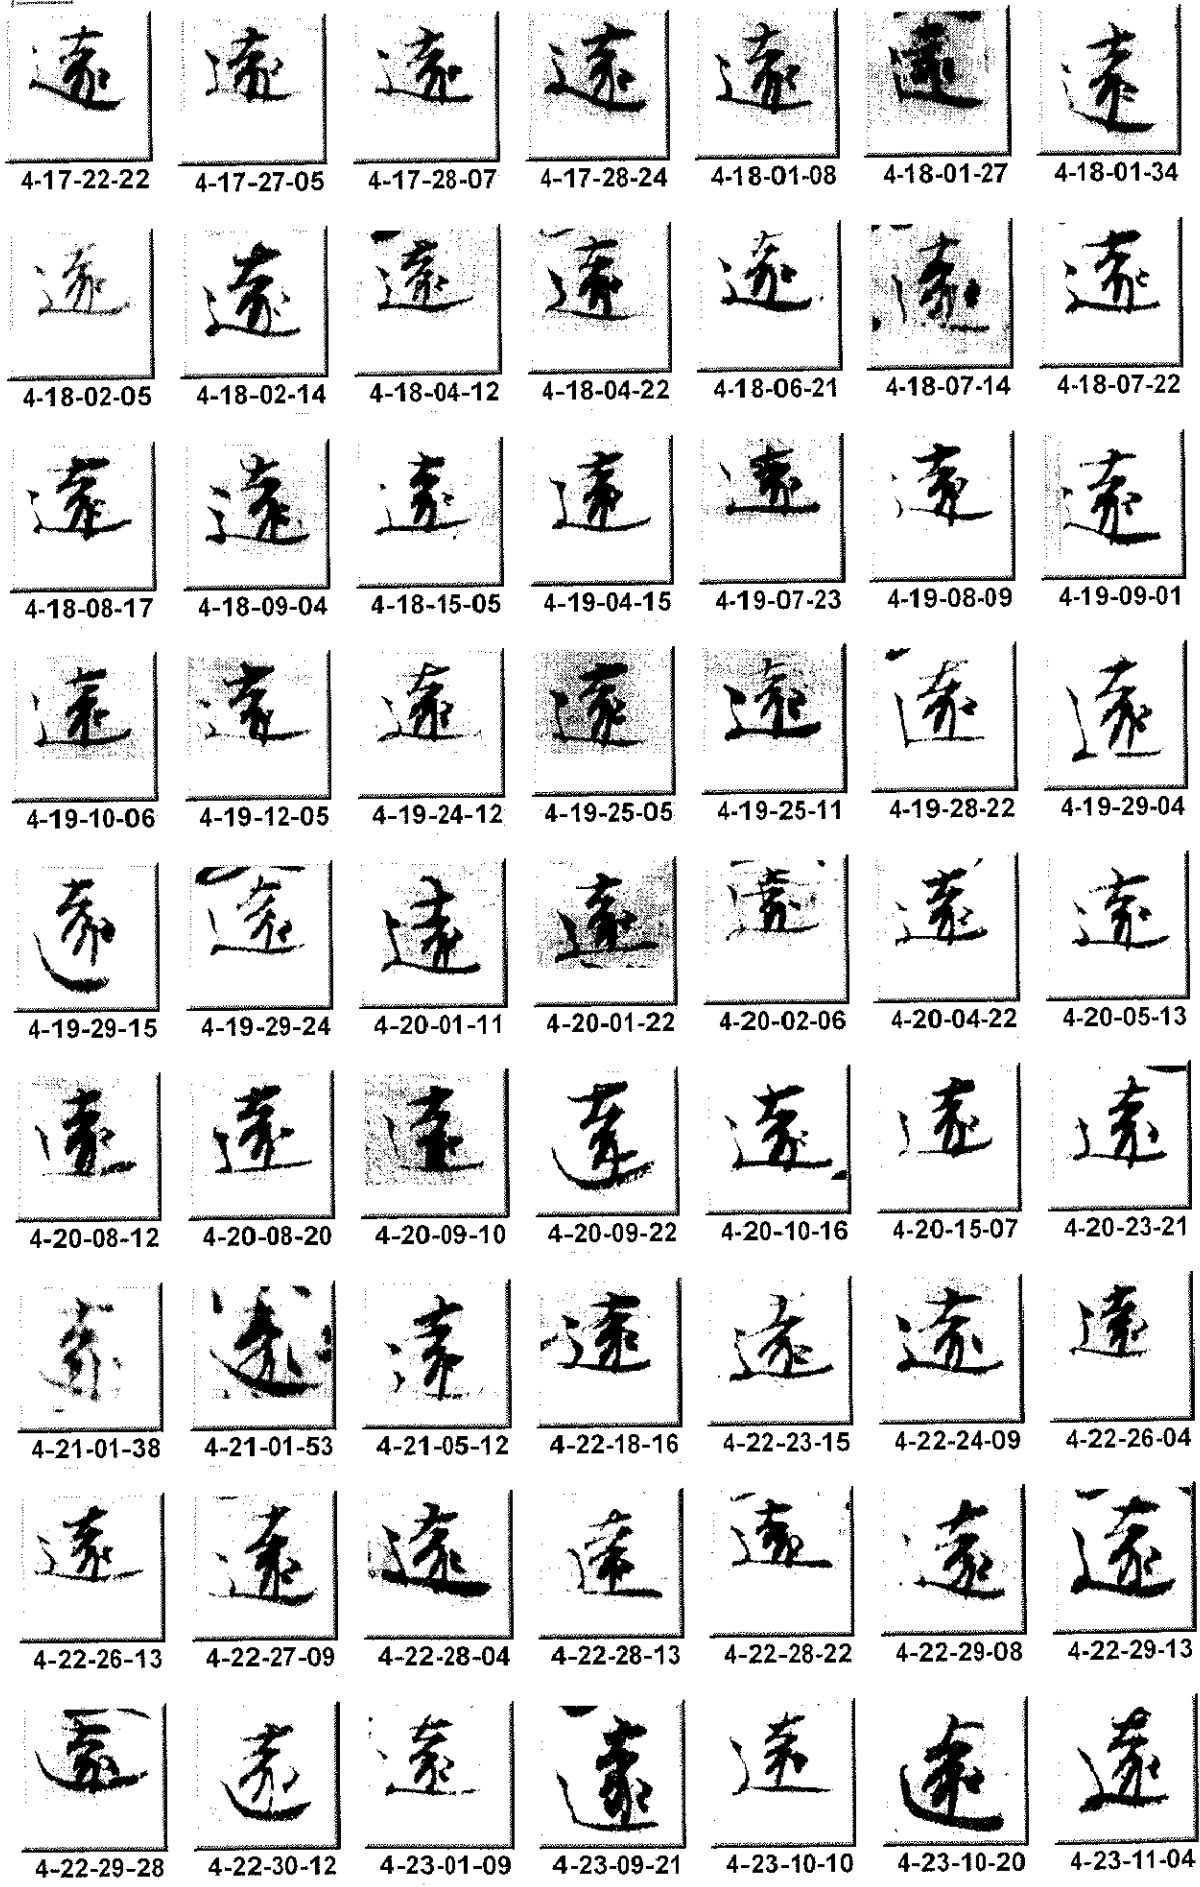 遠 遠 遠 遠 遠 遠 遠
4-17-22-22 4-17-27-05 4-17-28-07 4-17-28-24 4-18-01-08 4-18-01-27 4-18-01-34
遠 遠 遠 遠 遠 遠 遠
4-18-02-05 4-18-02-14 4-18-04-12 4-18-04-22 4-18-06-21 4-18-07-14 4-18-07-22
遠 遠 遠 遠 遠 遠 遠
4-18-08-17 4-18-09-04 4-18-15-05 4-19-04-15 4-19-07-23 4-19-08-09 4-19-09-01
遠 遠 遠 遠 遠 遠 遠
4-19-10-06 4-19-12-05 4-19-24-12 4-19-25-05 4-19-25-11 4-19-28-22 4-19-29-04
遠 遠 遠 遠 遠 遠 遠
4-19-29-15 4-19-29-24 4-20-01-11 4-20-01-22 4-20-02-06 4-20-04-22 4-20-05-13
遠 遠 遠 遠 遠 遠 遠
4-20-08-12 4-20-08-20 4-20-09-10 4-20-09-22 4-20-10-16 4-20-15-07 4-20-23-21
遠 遠 遠 遠 遠 遠 遠
4-21-01-38 4-21-01-53 4-21-05-12 4-22-18-16 4-22-23-15 4-22-24-09 4-22-26-04
遠 遠 遠 遠 遠 遠 遠
4-22-26-13 4-22-27-09 4-22-28-04 4-22-28-13 4-22-28-22 4-22-29-08 4-22-29-13
遠 遠 遠 遠 遠 遠 遠
4-22-29-28 4-22-30-12 4-23-01-09 4-23-09-21 4-23-10-10 4-23-10-20 4-23-11-04